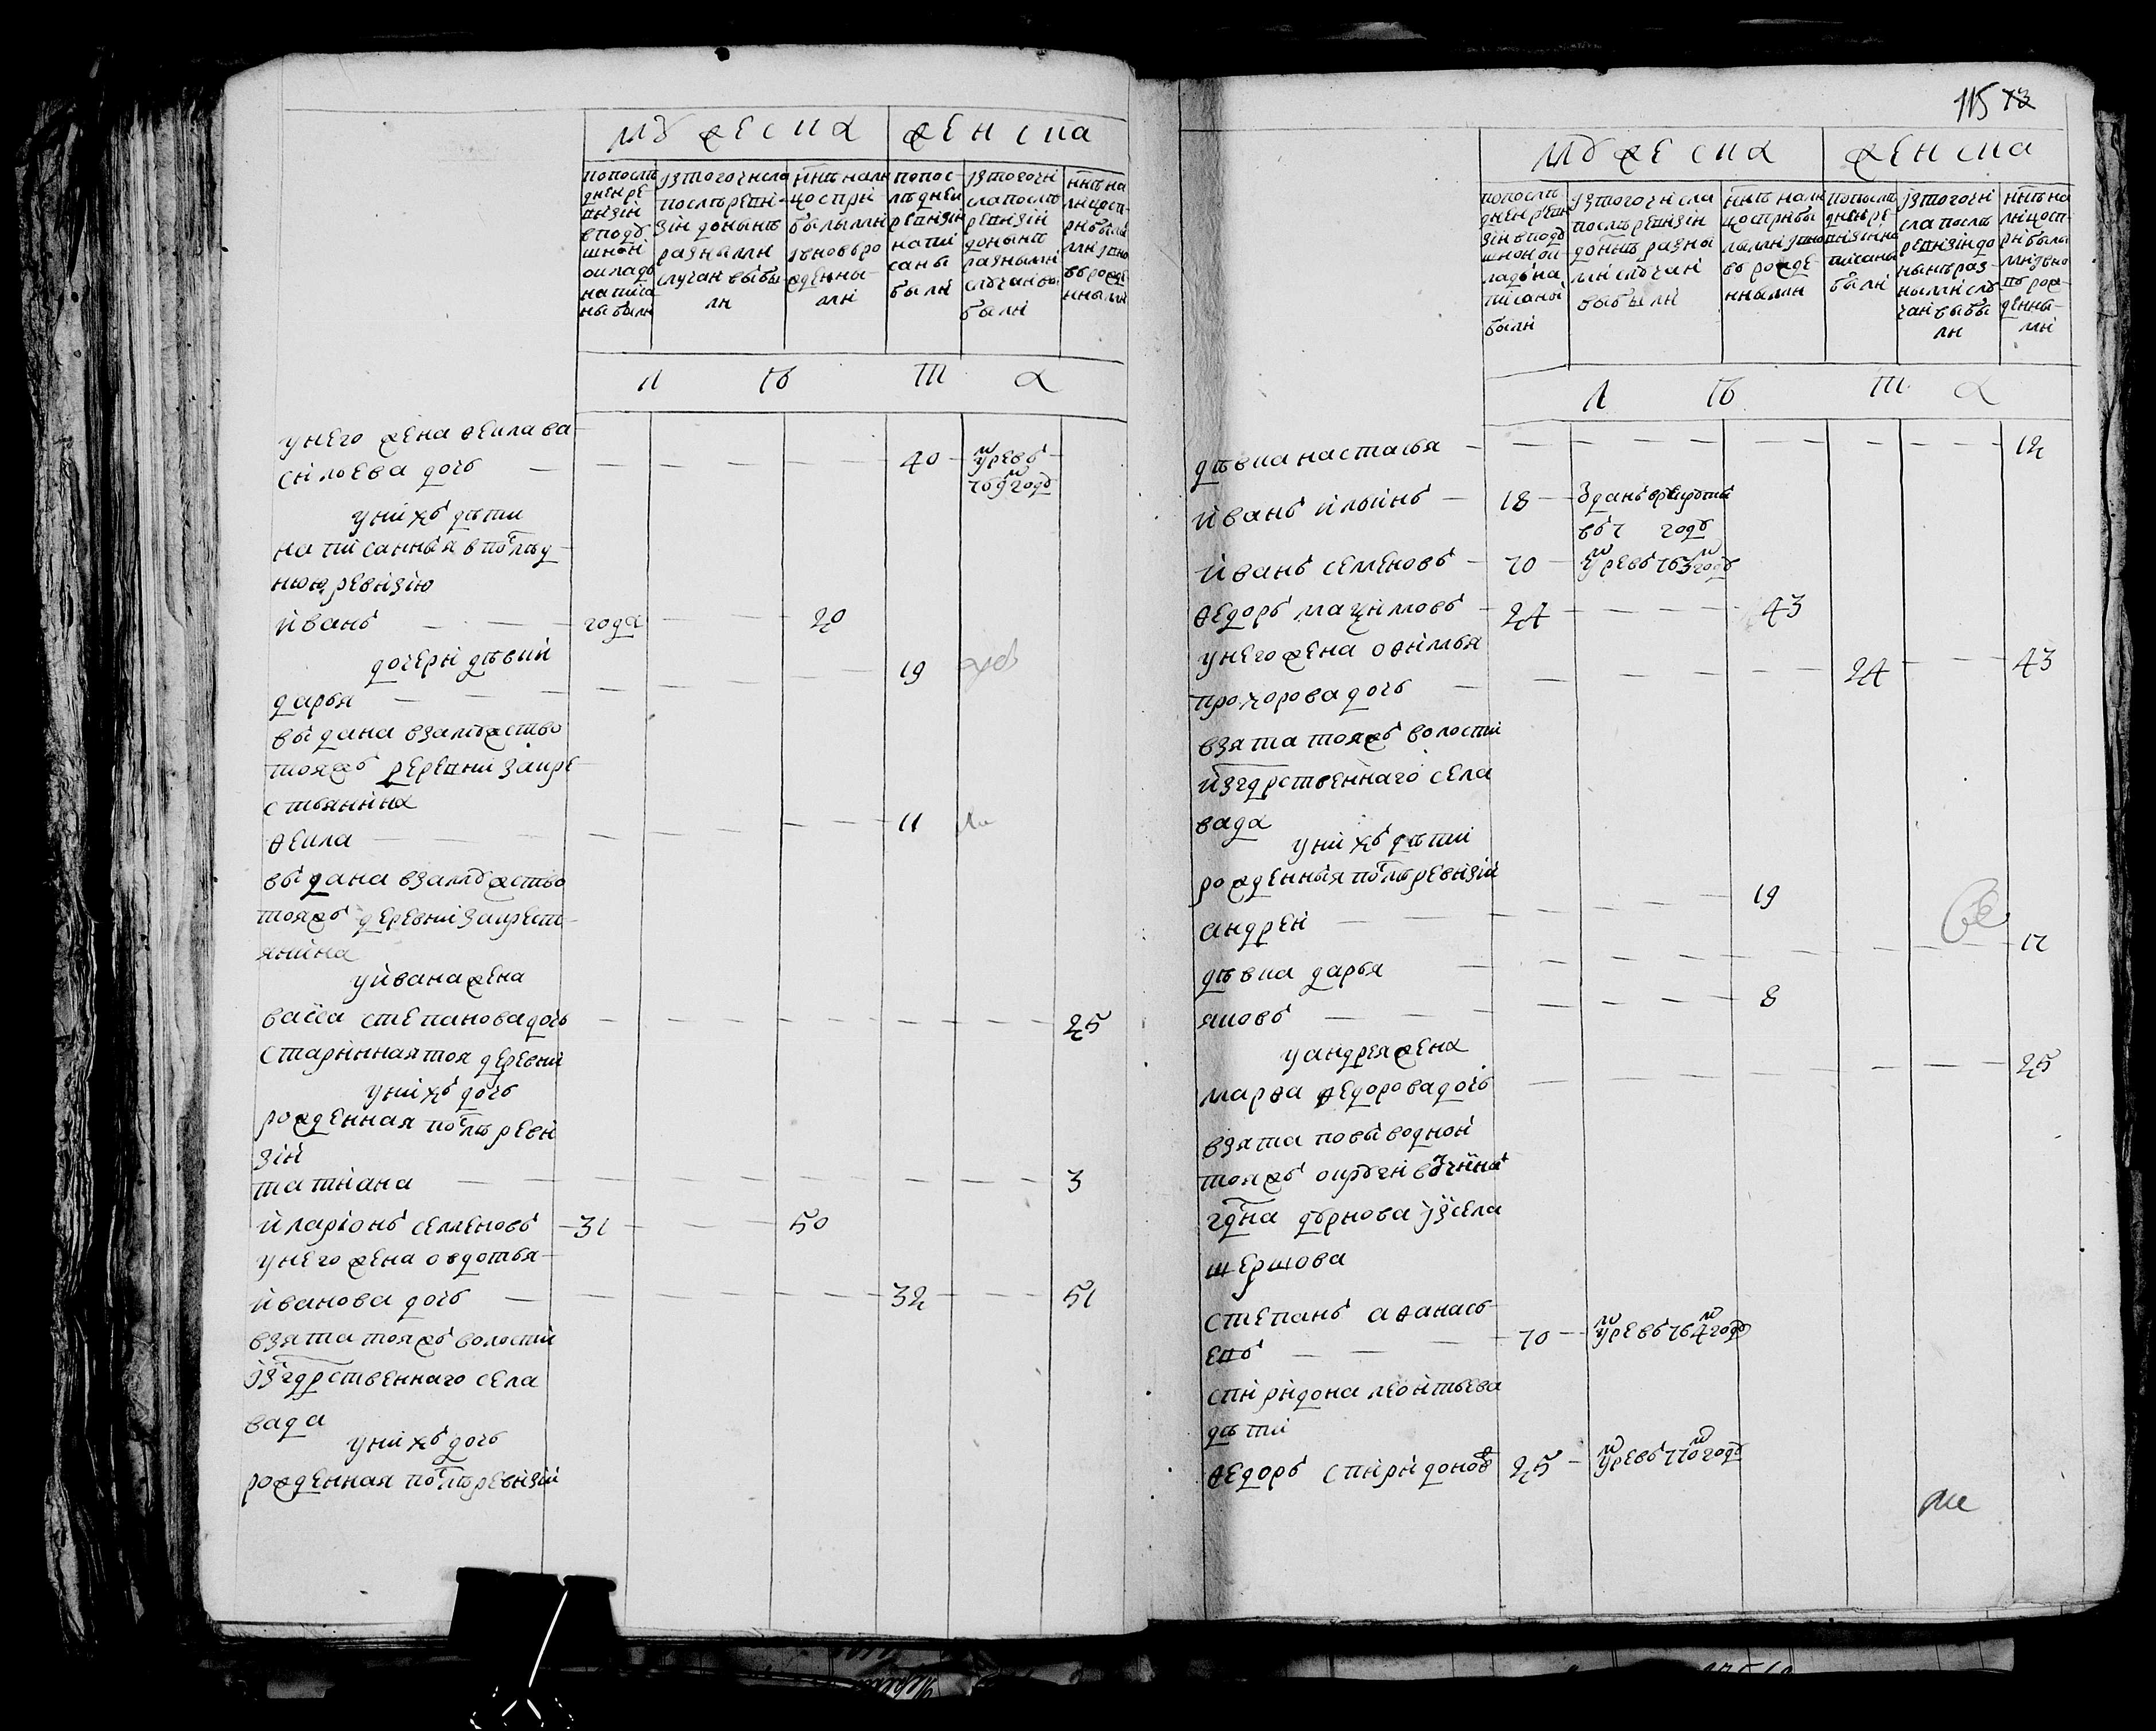 мꙋжеска женска
попослѣ днеи ревизіи вподꙋшноі окладъ написаны были
ізтогочисла послѣревизіи донынѣ разными случаи выбыли
нн҃ѣ налицо спрібылыми івновьрожденными
попослѣднеи ревизіи написаны были
ізтогочісла послѣ ревизіи донынѣ разнымі слꙋчаи выбылі
нн҃ѣ налицост прібылымі івновь рожденными
л ѣ т а
унего жена ѳекла ва
сильева дочь — 40 умре въ
769 годꙋ
унихъ дѣти
написанныя впослѣд
нюю ревизію
иванъ — года — 20
дочери дѣвки
дарья — 19
выдана взамꙋжство
тояжъ деревни закре
стьянина
ѳекла — 11
выдана взамꙋжство
тояжъ деревни закрест
янина
уивана жена
васса степанова дочь — 25
старинная тоя деревни
унихъ дочь
рожденная послѣ реви
зіи
татиана — 3
иларіонъ семеновъ — 31 — 50
унего жена овдотья
иванова дочь — 32 — 51
взята тояжъ волости
ізгдрственнаго села
вада
унихъ дочь
рожденная послѣ ревизіи
115 73
мꙋжеска женска
попослѣднеи ревизіи вподꙋшноі окладъ написаны были
ізтогочісла послѣ ревизіи донн҃ѣ разнымі слꙋчаі выбыли
нн҃ѣ налицо спрібылымі івновь рожденными
попослѣднеи ревизіи написаны были
ізтогочісла послѣ ревизіи донынѣ разнымі слꙋчаі выбыли
нн҃ѣ налицост прібылымі івновь рожденнымі
л ѣ т а
дѣвка настасья — 12
иванъ ильинъ — 18 — зданъ врекрꙋты
въ 7 годꙋ
иванъ семеновъ — 70 — умре въ 763 годꙋ
ѳедоръ маѯимовъ — 24 — 43
унего жена оѳимья
прохорова дочь — 24 — 43
взята тояжъ волости
изгдрственнаго села
вада
унихъ дѣти
рожденныя послѣ ревизіи
андреи — 19
дѣвка дарья — 17
яковъ — 8
уандрея жена
марѳа ѳедорова дочь — 25
взята повыводной
тояжъ округи вотчины
гдна дꙋрнова ізсела
шершова
степанъ аѳанась
евъ — 70 — умре въ 764 годꙋ
спиридона леонтьева
дѣти
ѳедоръ спиридоновъ 25 — умре въ 770 годꙋ